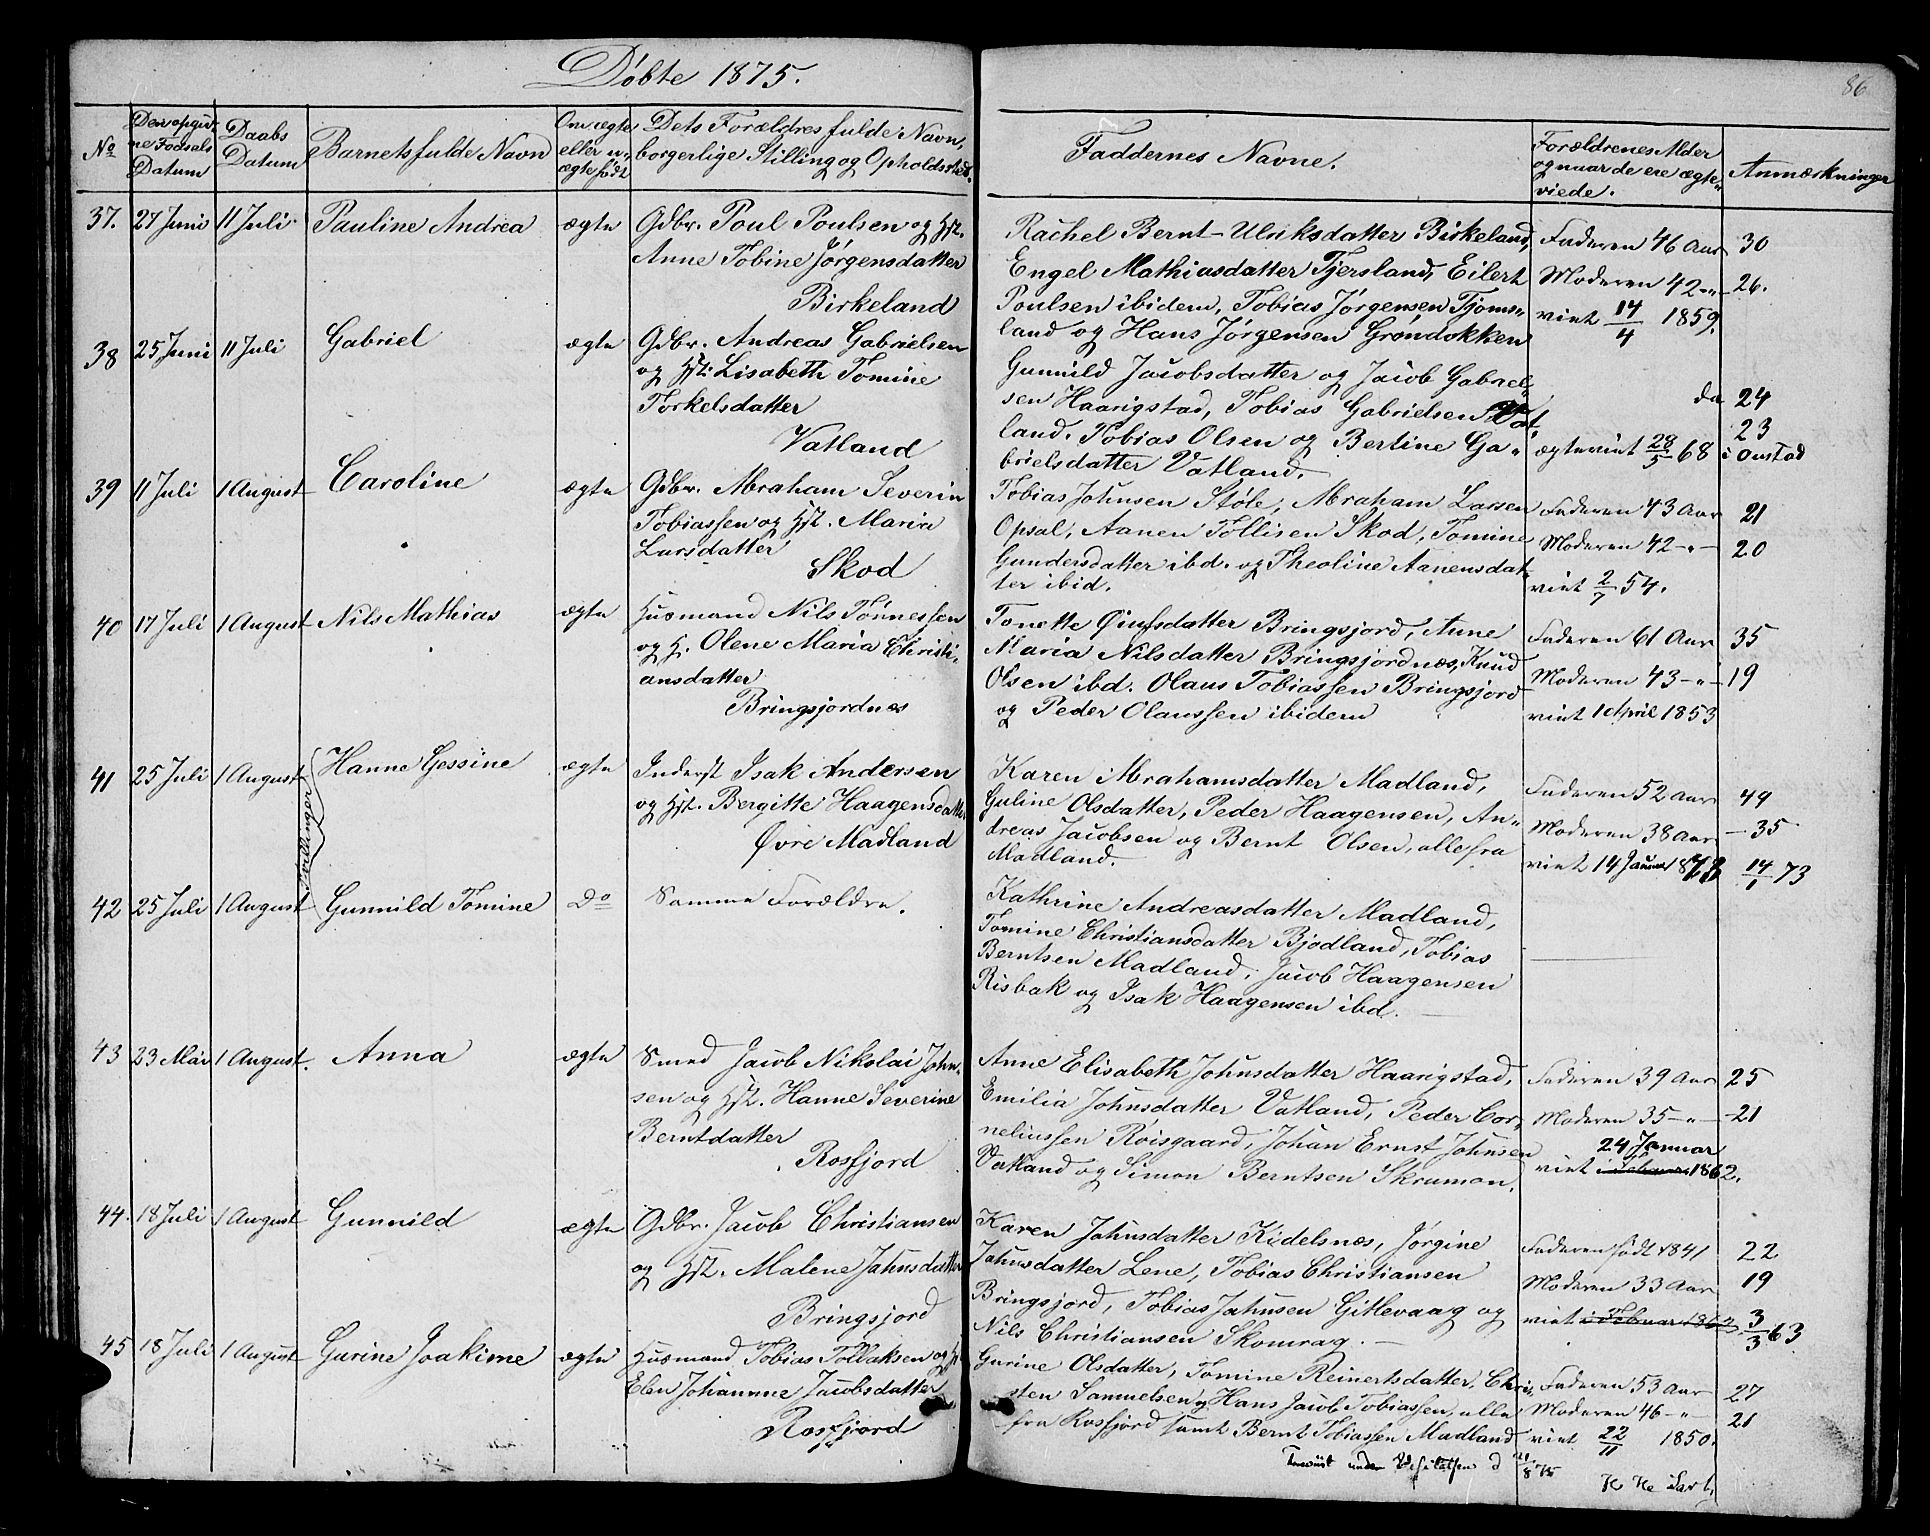 Døbte 1875.
86
No
Den opgiv-
ne Fødsels
Datum
Daabs
Datum
Barnets fulde Navn
Om ægte
eller u-
ægte født
Dets Forældres fulde Navn,
borgerlige Stilling og Opholdssted.
Faddernes Navne.
Forældrenes Alder
og naar de ere ægte-
viede.
Anmærkninger
37. 27 Juni 11 Juli Pauline Andrea ægte Gdbr. Poul Poulsen og Hst.
Anne Tobine Jørgensdatter
Birkeland
Rachel Bernt-Ulriksdatter Birkeland,
Engel Mathiasdatter Tjersland, Eilert
Poulsen ibidem, Tobias Jørgensen Tjoms-
land og Hans Jørgensen Grøndokken
Faderen 46 Aar 30
Moderen 42 -"- 26.
viet 14/4 1859.
38 25 Juni 11 Juli Gabriel ægte Gdbr. Andreas Gabrielsen
og Hst. Lisabeth Tomine
Torkelsdatter
Vatland
Gunnild Jacobsdatter og Jacob Gabriel-
sen Haarigstad, Tobias Gabrielsen Vat-
land. Tobias Olsen og Bertine Ga-
brielsdatter Vatland.
da 24
23
ægteviet 28/5 68 i Omstad
39 11 Juli 1 August Caroline ægte Gdbr. Abraham Severin
Tobiassen og Hst. Maria
Larsdatter
Skod
Tobias Johnsen Støle, Abraham Larsen
Opsal, Aanen Tollisen Skod, Tomine
Gundersdatter ibd. og Theoline Aanensdat-
ter ibid.
Faderen 43 Aar 21
Moderen 42 -"- 20
viet 2/7 54.
40 17 Juli 1 August Nils Mathias ægte Husmand Nils Tønnessen
og H. Olene Maria Christi-
ansdatter
Bringsjordnæs
Tonette Øiufsdatter Bringsjord, Anne
Maria Nilsdatter Bringsjordnæs, Knud
Olsen ibd. Olaus Tobiassen Bringsjord
og Peder Olaussen ibidem
Faderen 61 Aar 35
Moderen 43 -"- 19
viet 1 April 1853
41 25 Juli 1 August Hanne Gessine ægte Inderst Isak Andersen
og Hst. Bergitte Haagensdatter
Øvre Madland
Tvillinger
Karen Abrahamsdatter Madland,
Guline Olsdatter, Peder Haagensen, An-
dreas Jacobsen og Bernt Olsen, alle fra
Madland.
Faderen 52 Aar 49
Moderen 38 Aar - 35
viet 14 Januar 1873 14/1 73
42 25 Juli 1 August Gunnild Tomine Do Samme Forældre.
Kathrine Andreasdatter Madland,
Tomine Christiansdatter Bjodland, Tobias
Berntsen Madland, Jacob Haagensen
Risbak og Isak Haagensen ibd.
43 23 Mai 1 August. Anna ægte Smed Jacob Nikolai John-
sen og Hst. Hanne Severine
Berntdatter
Rosfjord
Anne Elisabeth Johnsdatter Haarigstad,
Emilia Johnsdatter Vatland, Peder Cor-
neliussen Røisgaard, Johan Ernst Johnsen
Vatland og Simon Berntsen Skrumon.
Faderen 39 Aar 25
Moderen 35 -"- 21
24 Januar
viet i Februar 1862.
44. 18 Juli 1 August Gunnild ægte Gdbr. Jacob Christiansen
og Hst. Malene Jahnsdatter
Bringsjord
Karen Jahnsdatter Kidelsnæs, Jørgine
Jahnsdatter Lene, Tobias Christiansen
Bringsjord, Tobias Jahnsen Gitlevaag og
Nils Christiansen Skomrag.
Faderen født 1841 22
Moderen 33 Aar 19
viet i Februar 1862 3/3 63
45 18 Juli 1 August Gurine Joakime ægte Husmand Tobias Tollaksen og Hst
Elen Johannne Jacobsdatter
Rosfjord
Gurine Olsdatter, Tomine Reinertsdatter, Chris-
sten Samuelsen, Hans Jacob Tobiassen, alle
fra Rosfjord samt Bernt Tobiassen Madland
Faderen 53 Aar 27
Moderen 46 -"- 21
viet 22/11 1850.
under Visitatsen d